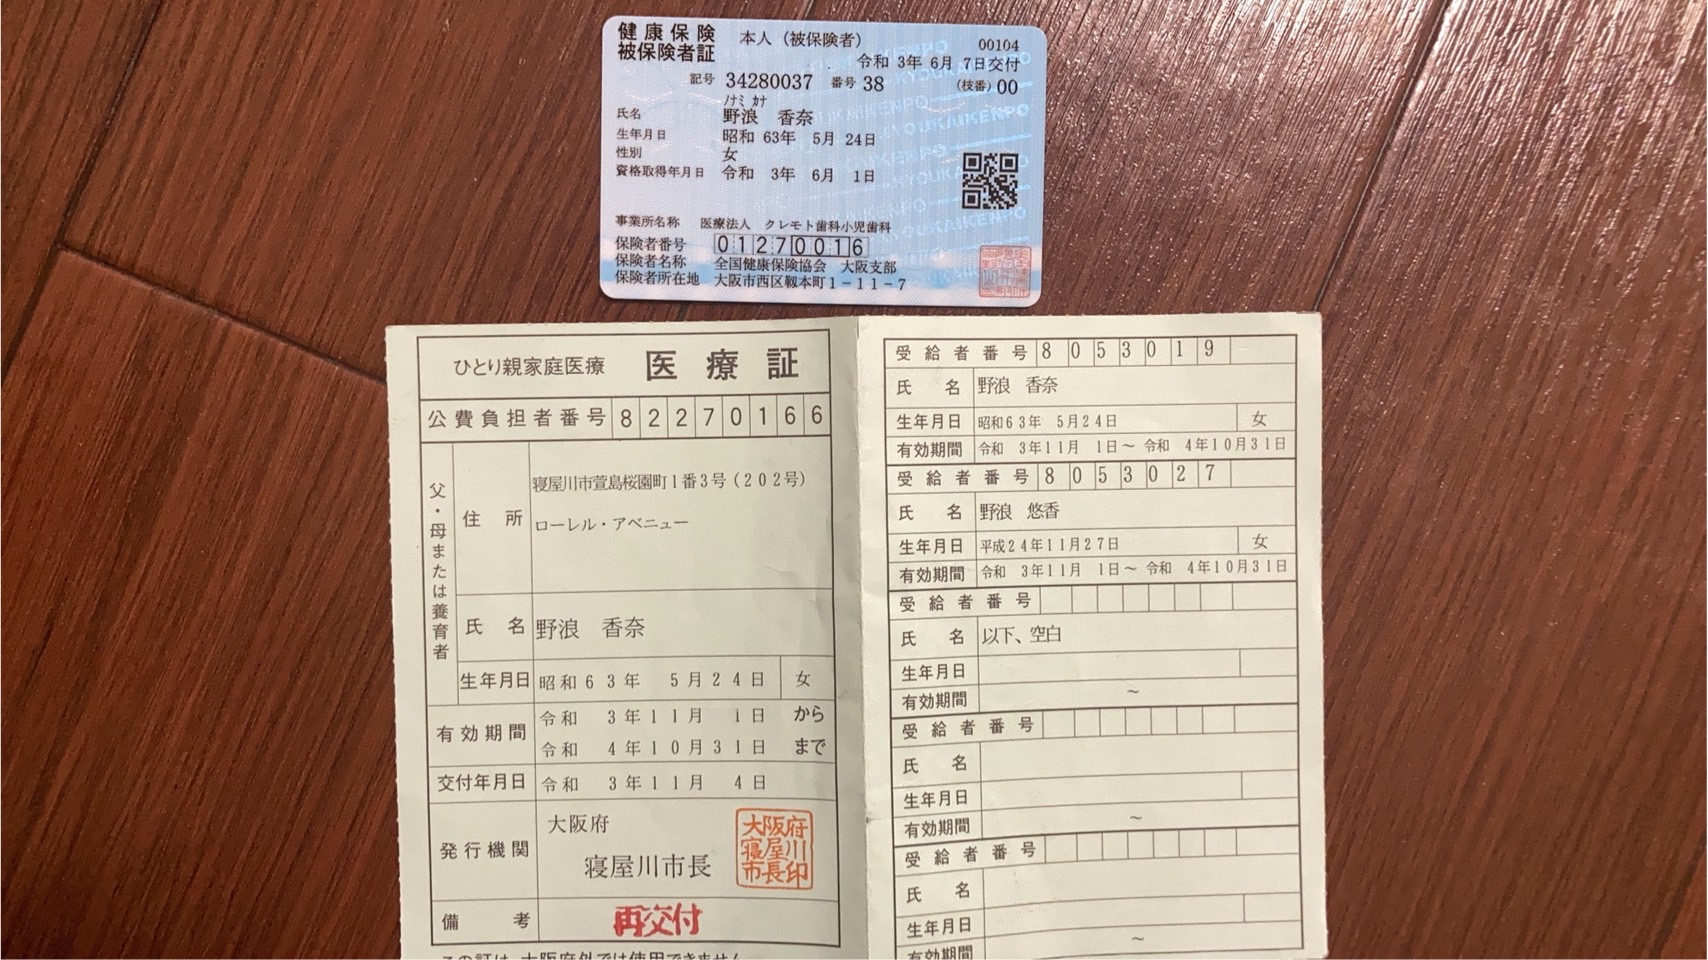 健康保険 本人（被保険者） 00104
被保険者証 令和 3年 6月 7日交付
記号 34280037 番号 38 (枝番) 00
ﾉﾅﾐ ｶﾅ
氏名 野浪 香奈
生年月日 昭和 63年 5月 24日
性別 女
資格取得年月日 令和 3年 6月 1日
事業所名称 医療法人 クレモト歯科小児歯科
保険者番号 01270016
保険者名称 全国健康保険協会 大阪支部
保険者所在地 大阪市西区靱本町1-11-7
ひとり親家庭医療 医療証
公費負担者番号 82270166
父・母または養育者
住所 寝屋川市萱島桜園町1番3号(202号)
ローレル・アベニュー
氏名 野浪 香奈
生年月日 昭和63年 5月24日 女
有効期間 令和 3年11月 1日 から
令和 4年10月31日 まで
交付年月日 令和 3年11月 4日
発行機関 大阪府
寝屋川市長
大阪府
寝屋川
市長印
備考 再交付
この証は、大阪府外では使用できません
受給者番号 8053019
氏名 野浪 香奈
生年月日 昭和63年 5月24日 女
有効期間 令和 3年11月 1日～令和 4年10月31日
受給者番号 8053027
氏名 野浪 悠香
生年月日 平成24年11月27日 女
有効期間 令和 3年11月 1日～令和 4年10月31日
受給者番号
氏名 以下、空白
生年月日
有効期間 ～
受給者番号
氏名
生年月日
有効期間 ～
受給者番号
氏名
生年月日
有効期間 ～